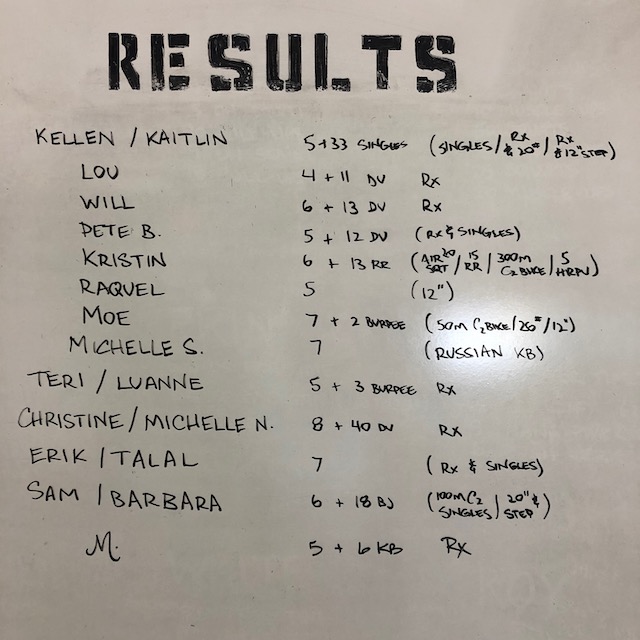 RESULTS
KELLEN / KAITLIN 5+33 SINGLES (SINGLES / RX & 20# / RX & 12" STEP)
LOU 4 + 11 DU Rx
WILL 6 + 13 DU Rx
PETE B. 5 + 12 DU (RX & SINGLES)
KRISTIN 6 + 13 RR (AIR SQT 20 / 15 RR / 300M C2 BIKE / 5 HRPU)
RAQUEL 5 (12")
MOE 7 + 2 BURPEE (50M C2 BIKE / 20# / 12")
MICHELLE S. 7 (RUSSIAN KB)
TERI / LUANNE 5 + 3 BURPEE Rx
CHRISTINE / MICHELLE N. 8 + 40 DU Rx
ERIK / TALAL 7 (RX & SINGLES)
SAM / BARBARA 6 + 18 BJ (100M C2 SINGLES / 20" & STEP)
M. 5 + 6 KB Rx